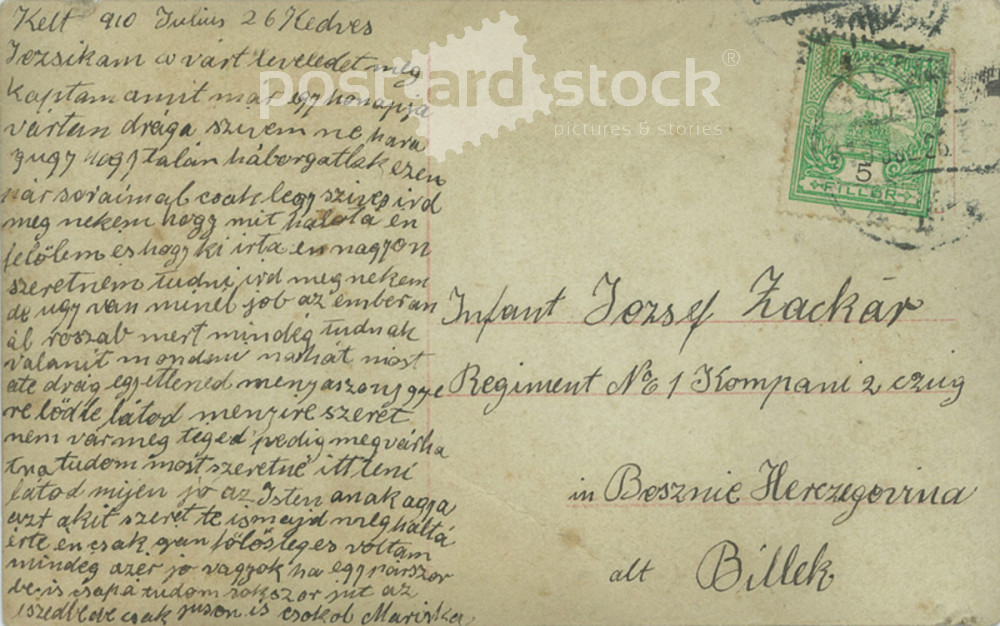 Kelt 910 Julius 26 Kedves
Jozsikam a várt leveledet meg
kaptam amit már egy honapja
vártam drága szivem ne hara
gugy hogy talán háborgatlak ezen
pár soraimal csak legy szives ird
meg nekem hogy mit halotá én
felölem és hogy ki irta én nagyon
szeretném tudni ird meg nekem
de ugy van minél job az ember an
ál roszab mert mindég tudnak
valamit mondani nahát most
ate drág egyetlened menyaszonyg
re lödte látod menyire szeret
nem vár meg téged pedig megvárha
tna tudom most szeretné itt
látod mijen jo az Isten anak agya
azt akit szeret te is majd meg háltá
érte én csak fölösleges voltam
mindég azér jo vagyok ha egy párszor
be is csapá tudom sokszor jut az
eszedbe de csak is csokol Mariska
postcard stock®
pictures & stories
5
FILLÉR
Infant Jozsef Zackár
Regiment No 1 Kompani 2 czug
in Bosznie Herczegovina
alt Billek